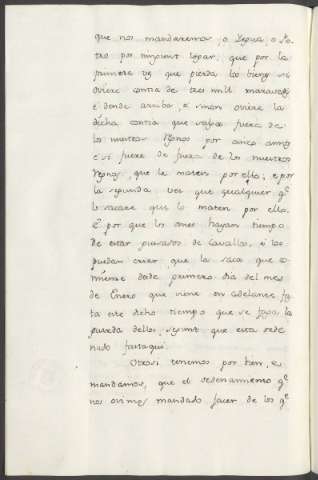 que nos mandaremos, o Yegua, o Po
tro por ningunt logar; que por la
primera vez que pierda los bienes si
oviere contia de tres mill maravedis
e dende arriba, e sinon oviere la
dicha contia que salga fuera de
los nuestros Regnos por cinco annos
e si fuere de fuera de los nuestros
Regnos, que le maten por ello; e por
la segunda vez que qualquier q.e
lo sacare que lo maten por ello.
E por que los omes hayan tiempo
de estar guisados de Cavallos, e los
puedan criar que la saca que co
mience desde primero dia del mes
de Enero que viene en adelante, fas
ta este dicho tiempo que se faga la
guarda dellos segunt que esta orde
nado fastaqui.
Otrosi tenemos por bien, e
mandamos, que el ordenamiento q.e
nos ovimos mandado facer de los q.e